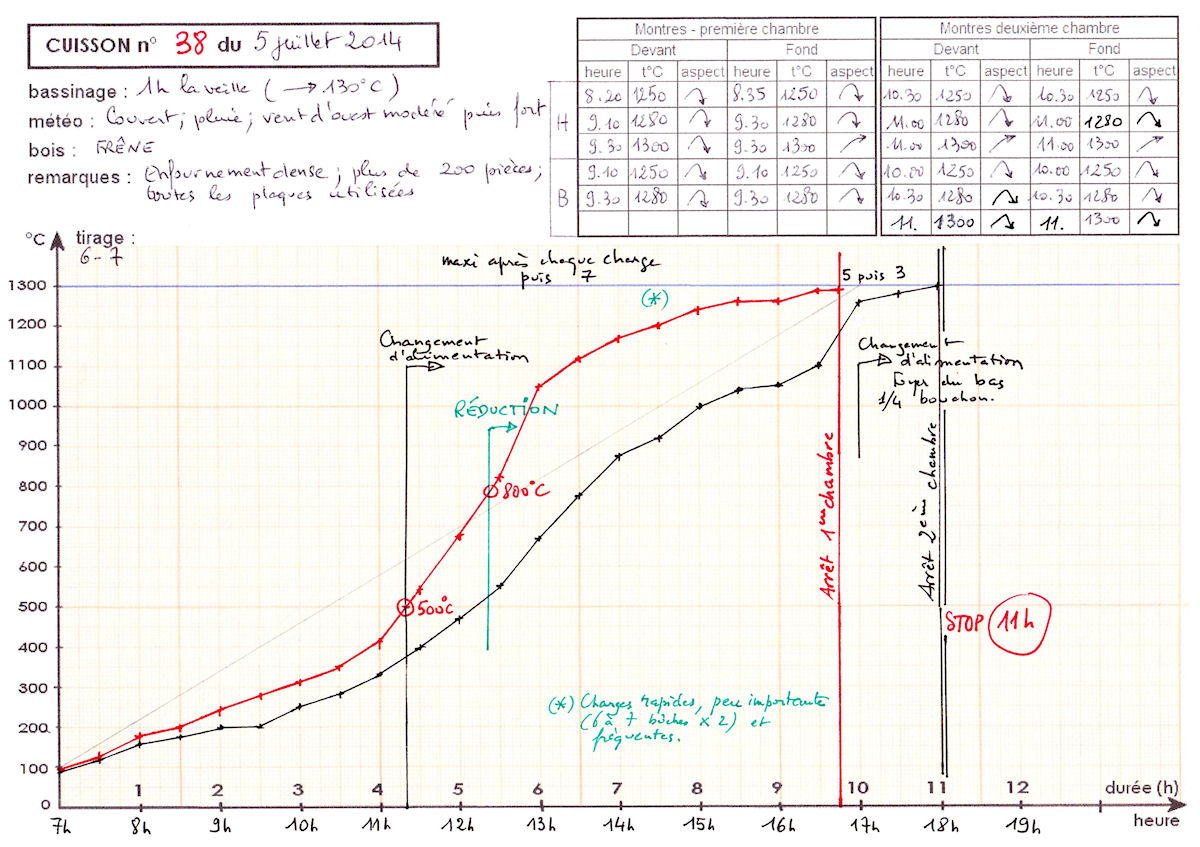 CUISSON n° 38 du 5 juillet 2014
bassinage : 1h la veille (→ 130°C)
météo : Couvert ; pluie ; vent d'ouest modéré puis fort
bois : FRÊNE
remarques : Enfournement dense ; plus de 200 pièces ;
toutes les plaques utilisées
Montres - première chambre
Devant Fond
heure t°C aspect heure t°C aspect
H 8.20 1250 8.35 1250
9.10 1280 9.30 1280
9.30 1300 9.30 1300
B 9.10 1250 9.10 1250
9.30 1280 9.30 1280
Montres deuxième chambre
Devant Fond
heure t°C aspect heure t°C aspect
10.30 1250 10.30 1250
11.00 1280 11.00 1280
11.00 1300 11.00 1300
10.00 1250 10.00 1250
10.30 1280 10.30 1280
11. 1300 11. 1300
°C tirage :
6-7
maxi après chaque charge
puis 7
5 puis 3
(*)
Changement
d'alimentation
RÉDUCTION
800°C
500°C
Changement
d'alimentation
Foyer du bas
1/4 bouchon.
Arrêt 1ère chambre
Arrêt 2ème chambre
STOP 11h
(*) Charges rapides, peu importante
(6 à 7 bûches x 2) et
fréquentes.
1300
1200
1100
1000
900
800
700
600
500
400
300
200
100
0
1 2 3 4 5 6 7 8 9 10 11 12 durée (h)
7h 8h 9h 10h 11h 12h 13h 14h 15h 16h 17h 18h 19h heure